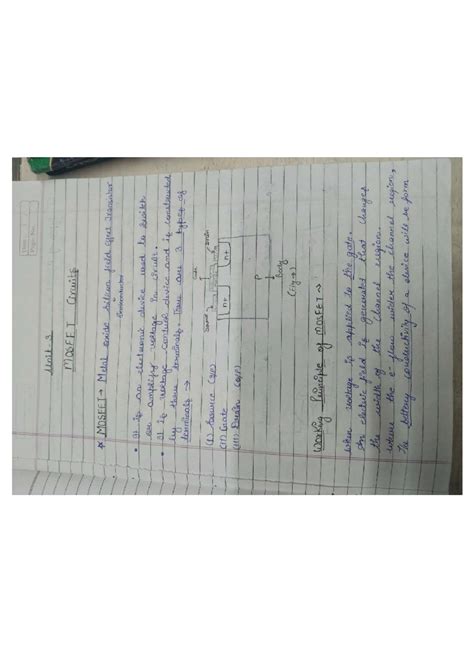 Unit 3
MOSFET Circuits
* MOSFET → Metal oxide silicon field effect transistor
Semiconductor
• It is an electronic device used to switch
or amplify voltage in circuit.
• It is voltage control device and is constructed
by three terminals. There are 3 types of
terminals →
(I) Source (S)
(II) Gate
(III) Drain
Source Gate Drain
n+ n+
P
body
Working Principle of MOSFET →
when voltage is applied to the gate.
An electric field is generated that changes
the width of the channel region.
where the e⁻ flow wider the channel region,
the conductivity of a device will be